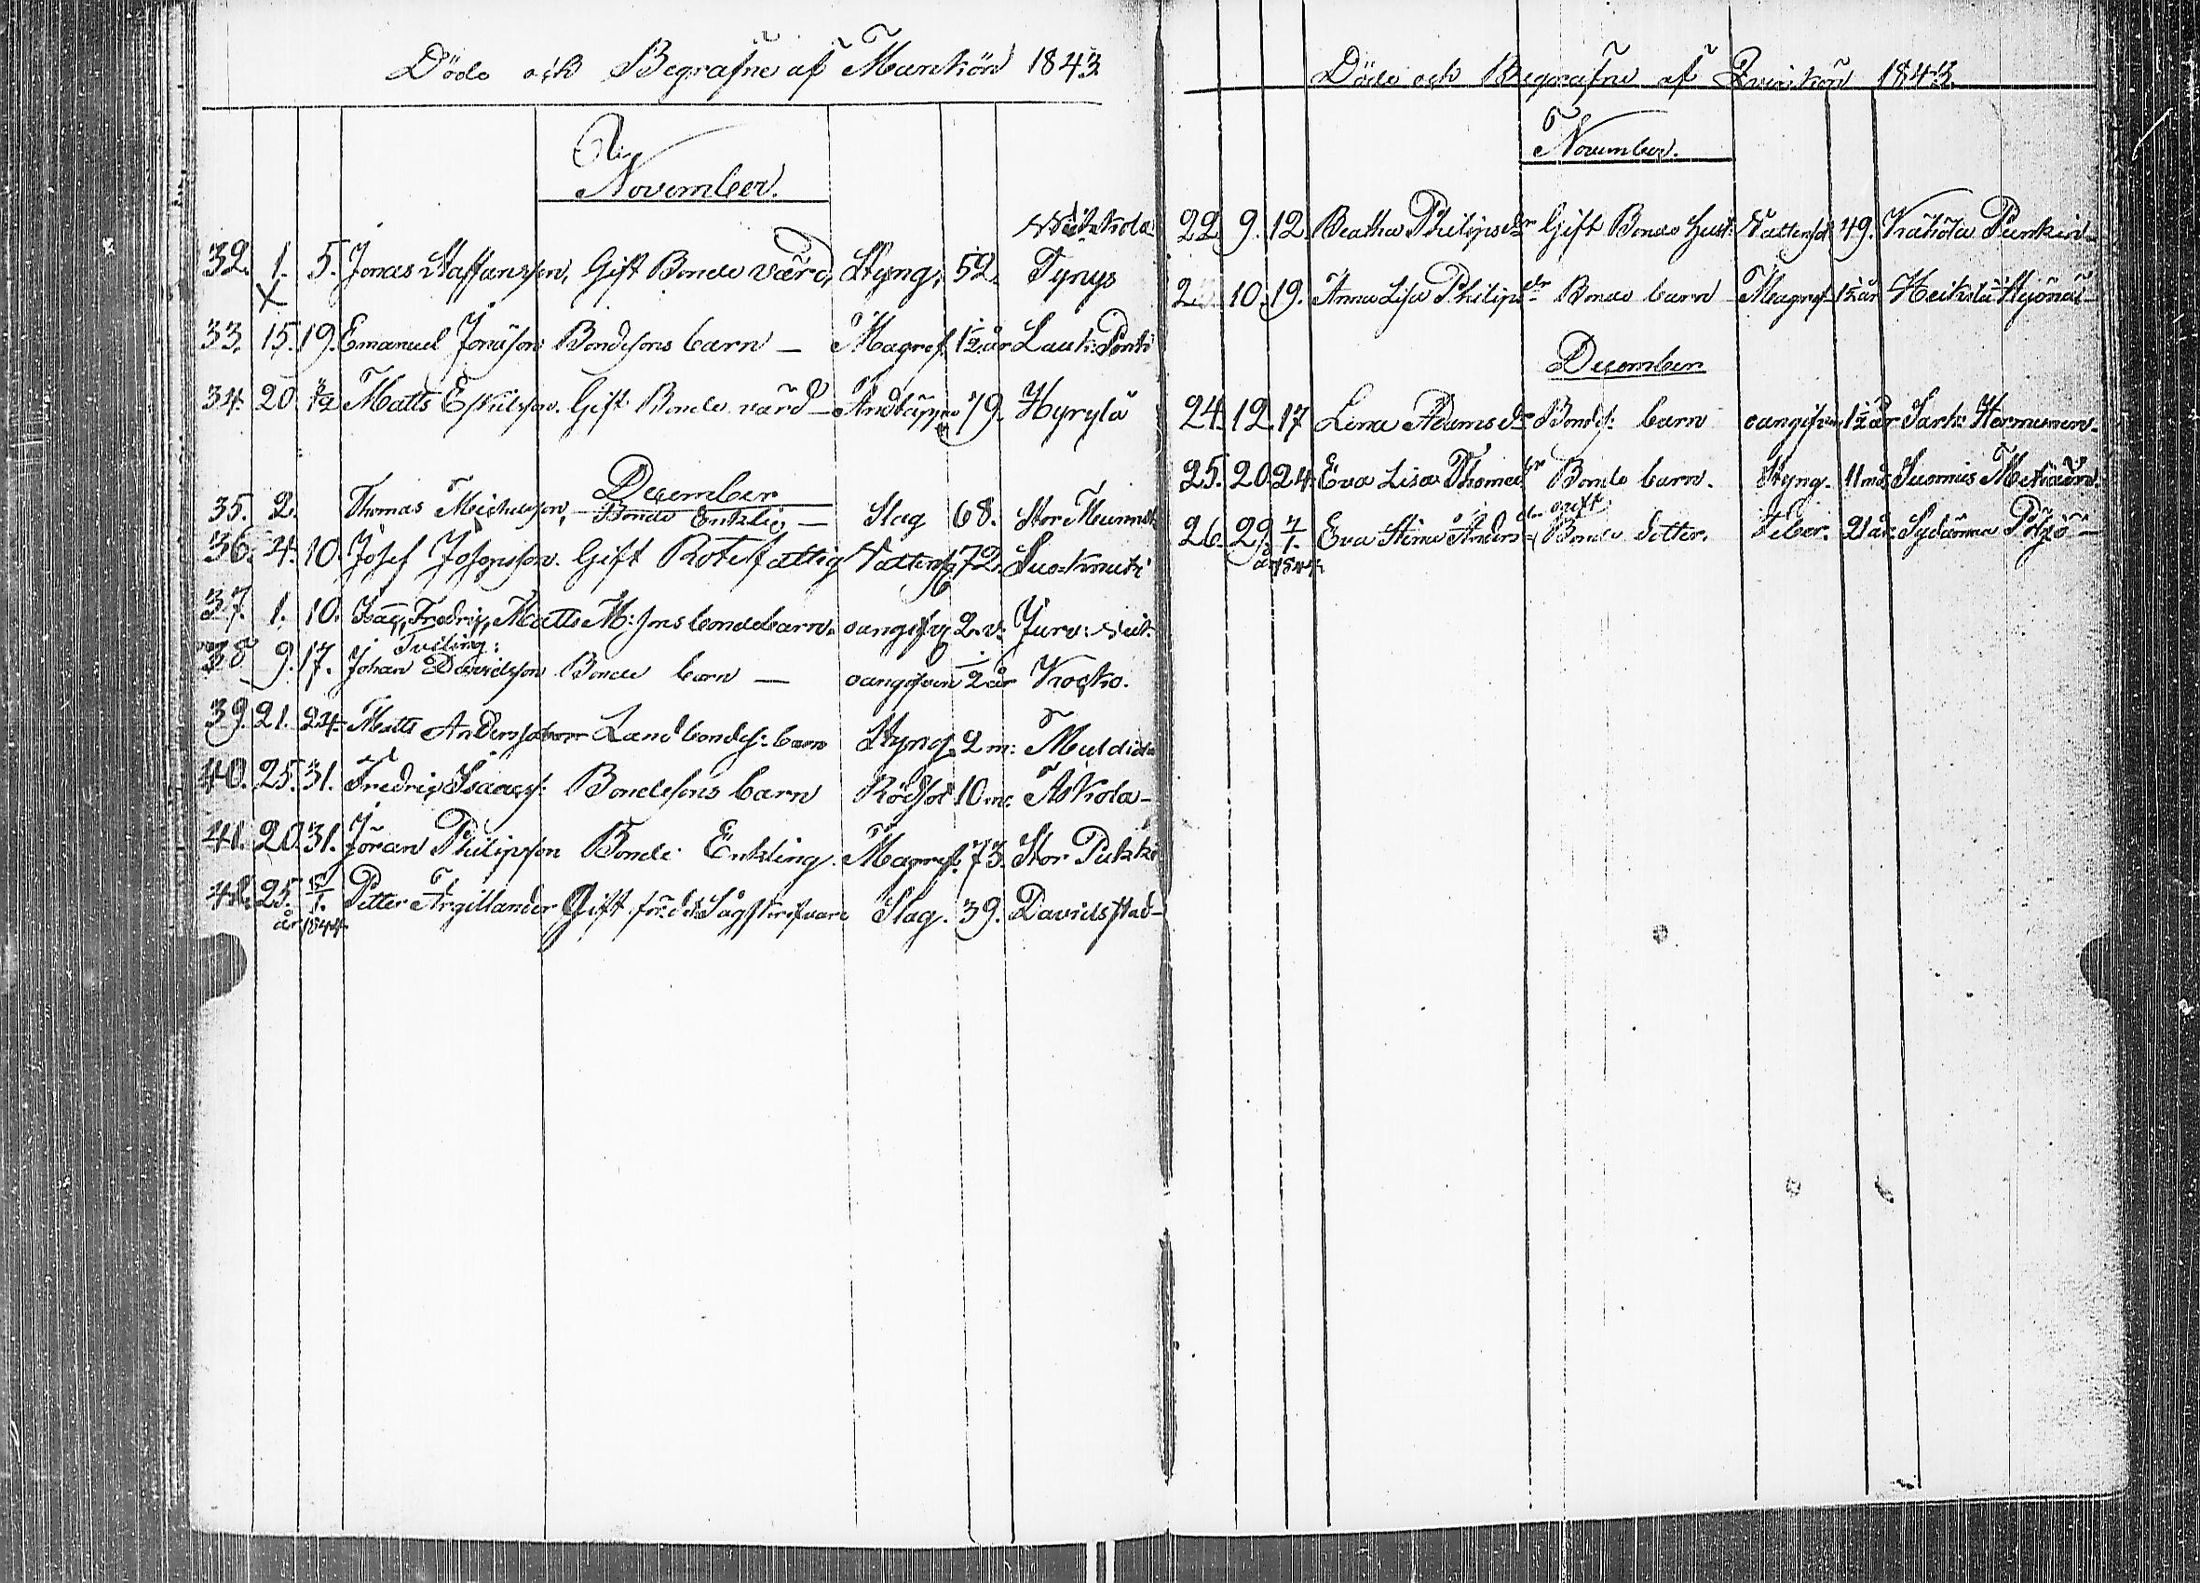 Döde och Begrafne af Mankön 1843
November.
32. 1. 5. Jonas Staffansson, Gift Bonde värd, Styng, 52. Tynys
X
33. 15. 19. Emanuel Jonæson Bondesons barn — Magref. 1½ år Lauk: Pentti
34. 20. 3/12 Matts Eskilsson. Gift Bonde värd — Andtäppa 79. Hyrylä
December
35. 2. Thomas Michelsson, Bonde Enkling — Slag 68. Stor
36. 4. 10. Josef Josepsson. Gift Rotefattig Vattens. 72. Suo-Knuti
37. 1. 10. Isac, Fredric, Matts M: Jons bondebarn. oangifv. 2. v:
Tviling:
38 9. 17. Johan Davidsson Bonde barn — oangifven ½ år
39. 21. 24. Matts Andersson Landbondes: barn Styng. 2 m:
40. 25. 31. Fredric Isaacs: Bondesons barn Rödsot 10 m: Askola —
41. 20. 31. Jöran Philipsson Bonde Enkling. Magref. 73. Stor Pukki
42. 25. Petter Argillander Gift för d: Slag. 39. Davidsstad —
år 1844.
Döde och Begrafne af Qvinkön 1843.
November.
22. 9. 12. Beatha Philipsdr Gift Bonde Hust: Vattensot 49. Kähölä Punkin
2 10. 19. Anna Lisa Philipsdr Bonde barn — Magref 1½ år Heikilä
December
24. 12. 17 Lena Adamsdr Bondes: barn oangifven 1½ år Sark:
25. 20. 24. Eva Lisa Thomædr Bonde barn. Styng. 11 md. Suomis
26. 29. 7/1. Eva Stina Andersdr ogift Bonde dotter. Feber. 21 år.
år 1844.